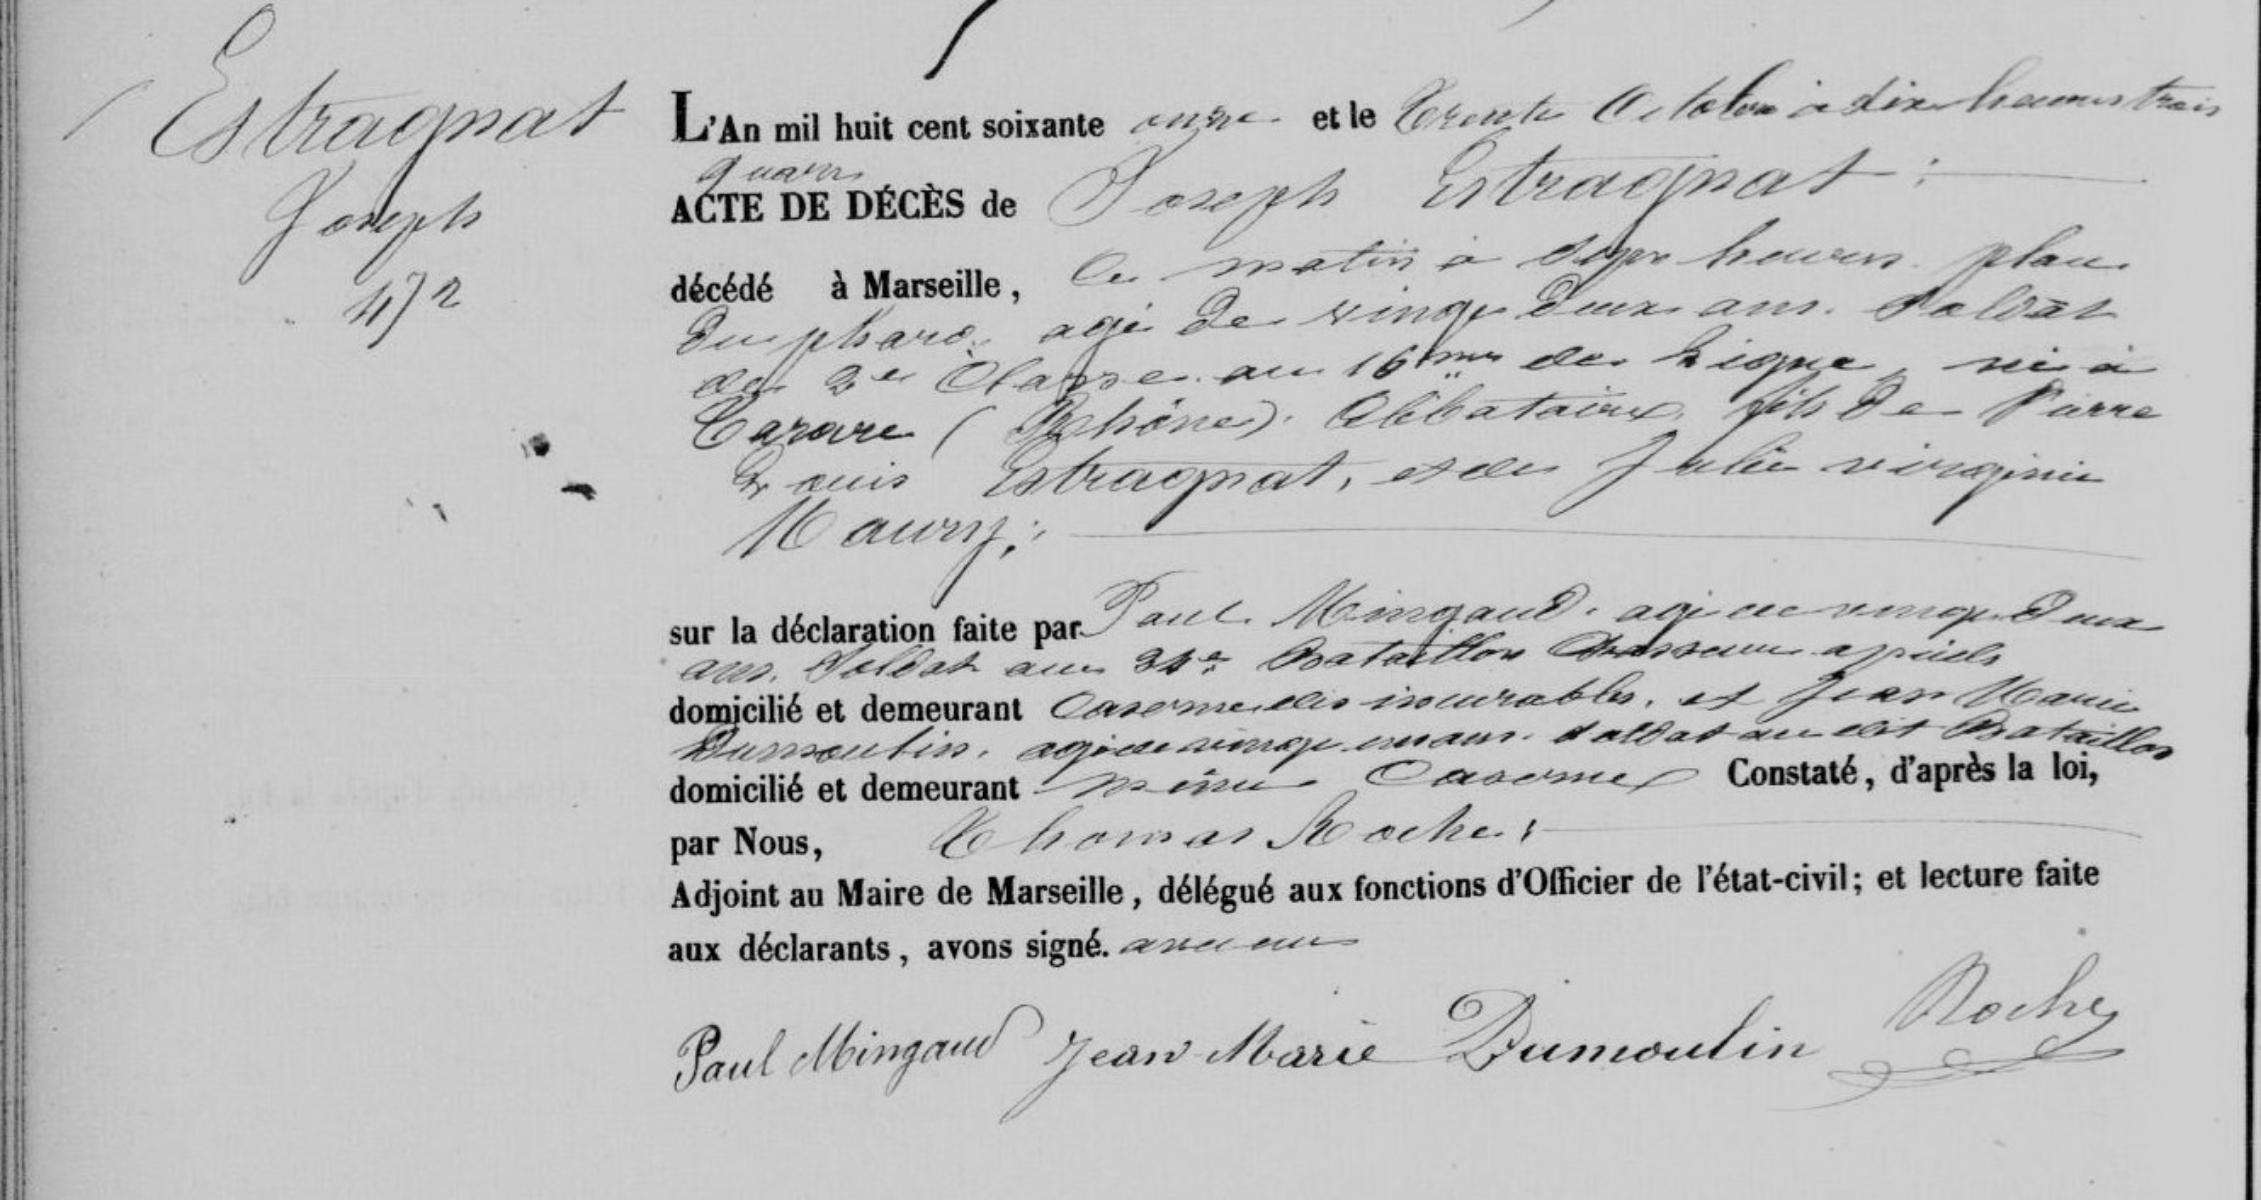 Estragnat
Joseph
472
L'An mil huit cent soixante onze et le Trente Octobre à dix heures trois
quarts
ACTE DE DÉCÈS de Joseph Estragnat :
décédé à Marseille, ce matin à sept heures place
du pharo, agé de vingt deux ans. Soldat
de 2e Classe au 16me de Ligne, né à
Tarare (Rhône). Célibataire, fils de Pierre
Louis Estragnat, et de Julie virginie
Maury;
sur la déclaration faite par Paul Mingaud. agé de vingt deux
ans, Soldat au 34e Bataillon Chasseurs à pieds
domicilié et demeurant Caserne des incurables, et Jean Marie
Dumoulin, agé de vingt un ans. soldat au dit Bataillon
domicilié et demeurant même Caserne Constaté, d'après la loi,
par Nous, Thomas Roche,
Adjoint au Maire de Marseille, délégué aux fonctions d'Officier de l'état-civil; et lecture faite
aux déclarants, avons signé. avec eux
Paul Mingaud Jean Marie Dumoulin Roche